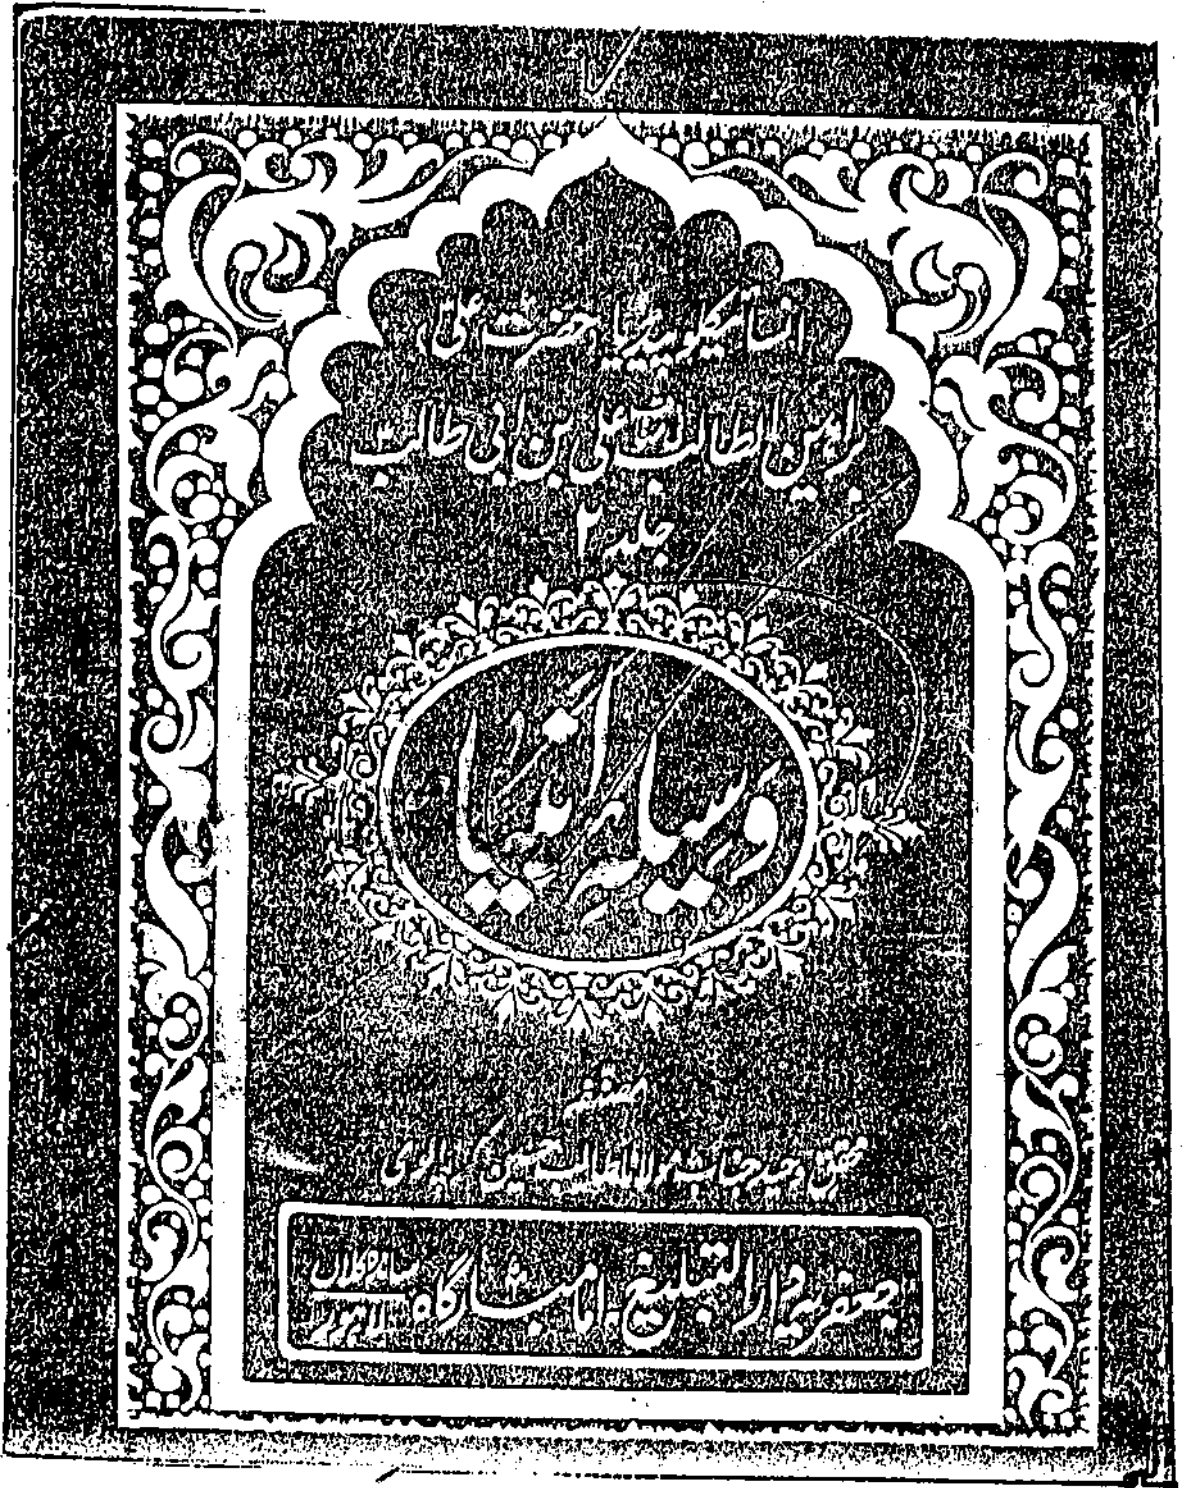 انسائیکلوپیڈیا حضرت علیؑ
براہین المطالب علی بن ابی طالب
جلد ۲
وسیلہ انبیاء
مصنفہ
محقق وحید جناب مولانا طالب حسین کرپالوی
جعفریہ دارالتبلیغ امامبارگاہ
لاہور